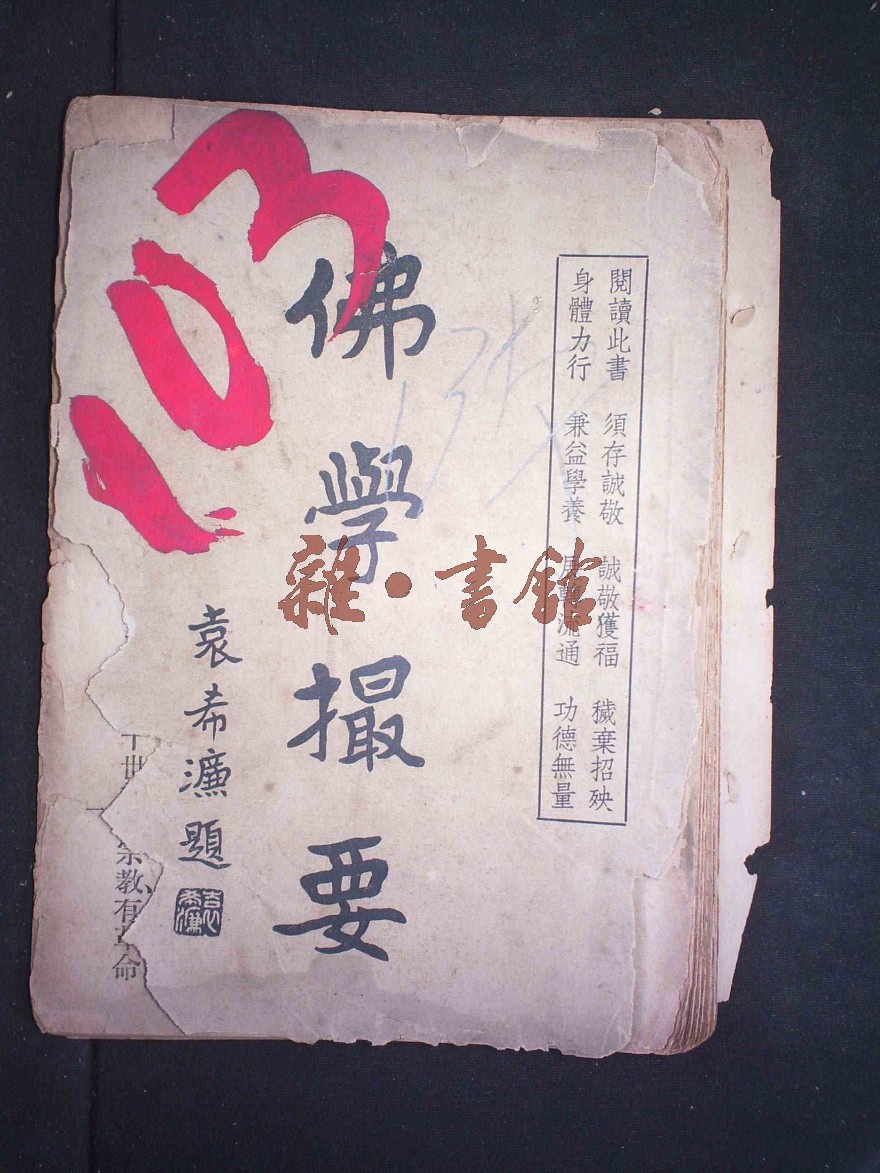 閱讀此書　須存誠敬　誠敬獲福　穢棄招殃
身體力行　兼益學養　展轉流通　功德無量
佛學撮要
袁希濂題
袁希濂
103
雜·書館
宗教有革命